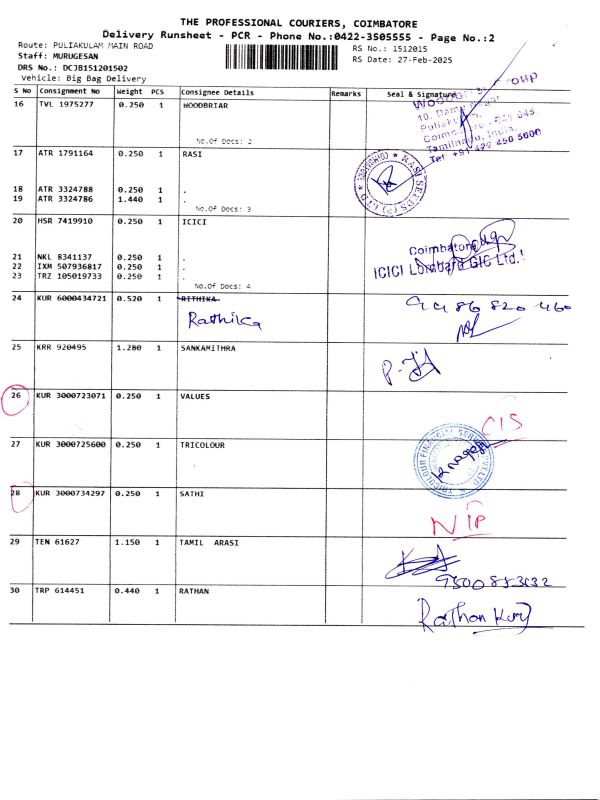 THE PROFESSIONAL COURIERS, COIMBATORE
Delivery Runsheet - PCR - Phone No.:0422-3505555 - Page No.:2
Route: PULIAKULAM MAIN ROAD RS No.: 1512015
Staff: MURUGESAN RS Date: 27-Feb-2025
DRS No.: DCJB151201502
Vehicle: Big Bag Delivery
S No Consignment No Weight PCS Consignee Details Remarks Seal & Signature
16 TVL 1975277 0.250 1 WOODBRIAR
No.Of Docs: 2
Tamilnadu, India.
17 ATR 1791164 0.250 1 RASI
RASI SEEDS (P) LTD
18 ATR 3324788 0.250 1 .
19 ATR 3324786 1.440 1 .
No.Of Docs: 3
20 HSR 7419910 0.250 1 ICICI
Coimbatore
ICICI Lombard GIC Ltd.
21 NKL 8341137 0.250 1 .
22 IXM 507936817 0.250 1 .
23 TRZ 105019733 0.250 1 .
No.Of Docs: 4
24 KUR 6000434721 0.520 1 RITHIKA
Rathika
25 KRR 920495 1.280 1 SANKAMITHRA
26 KUR 3000723071 0.250 1 VALUES
CIS
27 KUR 3000725600 0.250 1 TRICOLOUR
28 KUR 3000734297 0.250 1 SATHI
NIP
29 TEN 61627 1.150 1 TAMIL ARASI
30 TRP 614451 0.440 1 RATHAN
Rathan